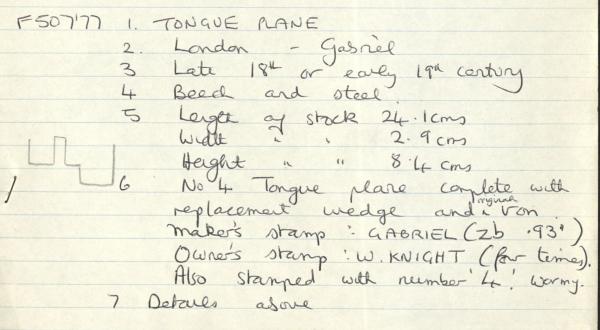 F507'77 1. TONGUE PLANE
2. London - Gabriel
3 Late 18th or early 19th century
4 Beech and steel.
5 Length of stock 24.1cms
Width " " 2.9cms
Height " " 8.4 cms
6 No 4 Tongue plane complete with
replacement wedge and original iron.
Maker's stamp :- GABRIEL (2b .93")
Owner's stamp :- W. KNIGHT (four times).
Also stamped with number '4'. Wormy.
7 Details above